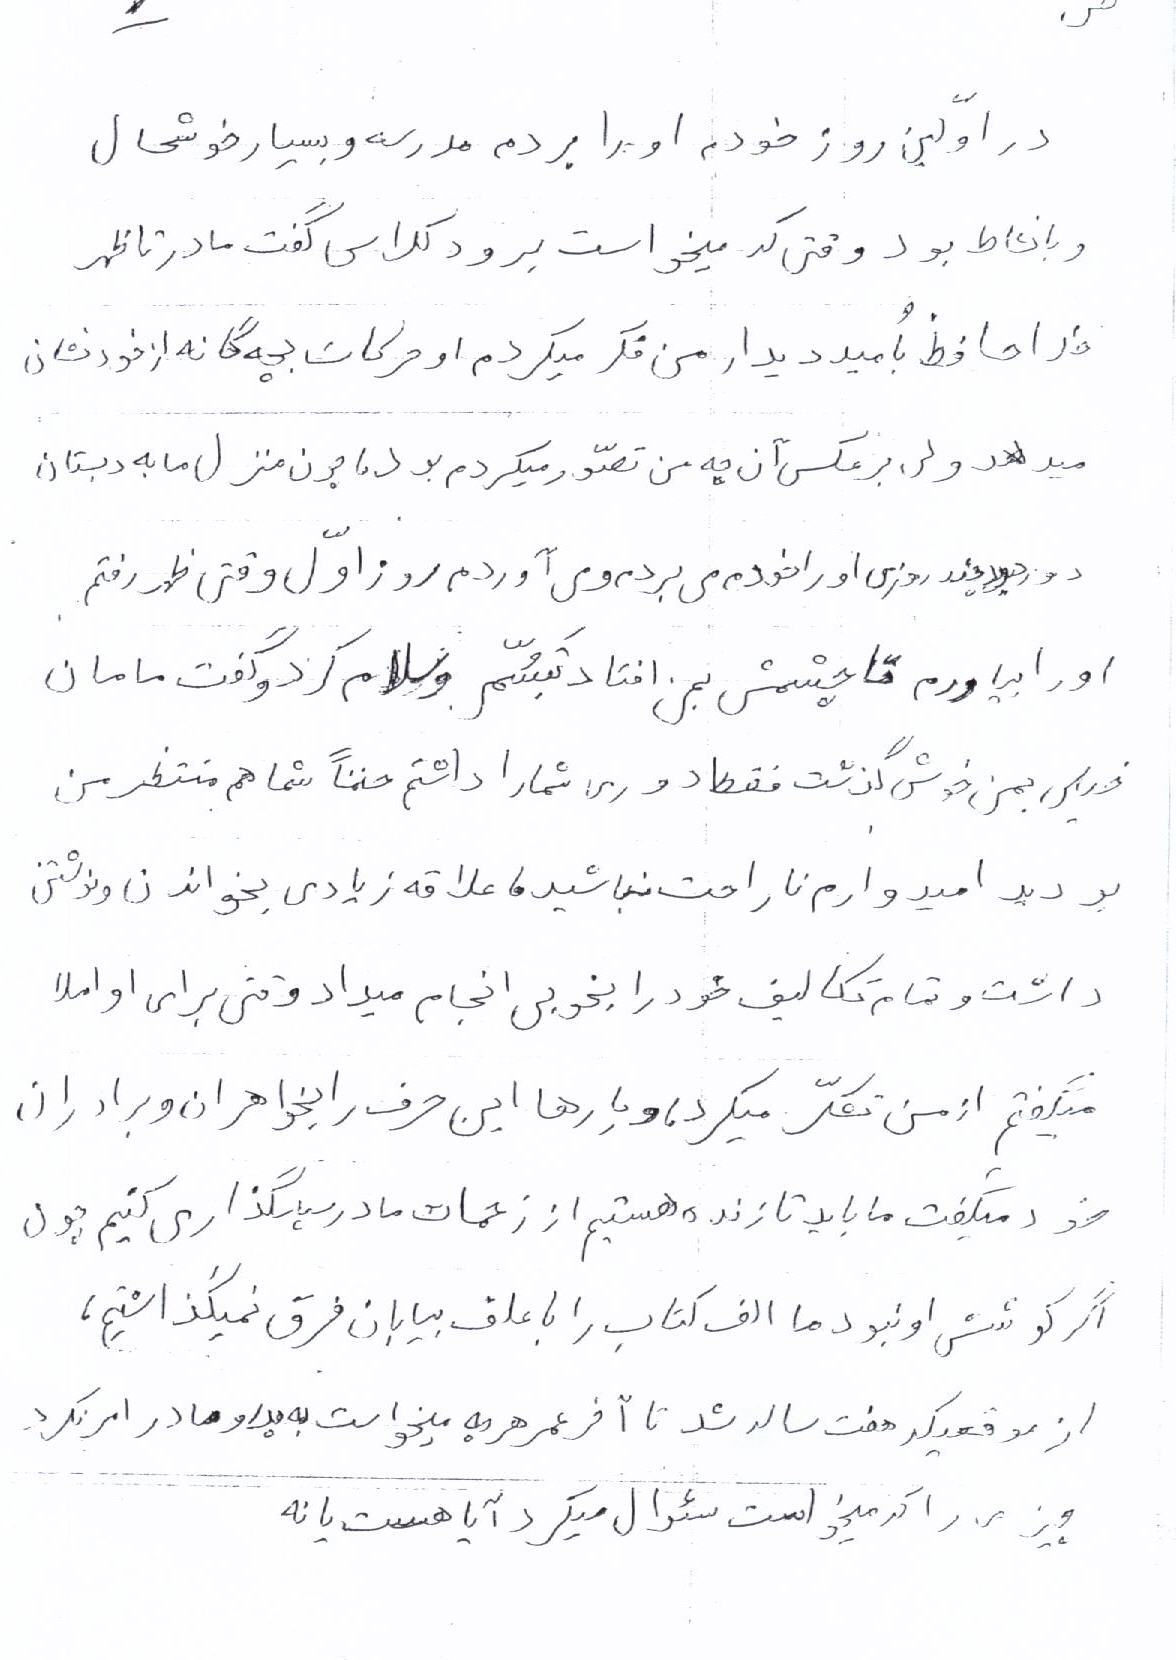 در اوّلین روز خودم او را بردم مدرسه و بسیار خوشحال
و بانشاط بود وقتی که میخواست برود کلاس گفت مادر تا ظهر
خدا حافظ بُامید دیدار من فکر میکردم او حرکات بچه گانه از خود نشان
میدهد ولی برعکس آن چه من تصوّر میکردم بود، چون منزل ما به دبستان
دور بود چند روزی او را خودم می بردم و می آوردم روز اوّل وقتی ظهر رفتم
او را بیاورم تا چشمش بمن افتاد تبسُّم و سلام کرد و گفت مامان
خیلی بمن خوش گذشت فقط دوری شما را داشتم حتماً شما هم منتظر من
بودید امیدوارم ناراحت نباشید، علاقه زیادی بخواندن و نوشتن
داشت و تمام تکالیف خود را بخوبی انجام میداد وقتی برای او املا
میگفتم از من تشکّر میکرد، و بارها این حرف را بخواهران و برادران
خود میگفت ما باید تا زنده هستیم از زحمات مادر سپاسگذاری کنیم چون
اگر کوشش او نبود ما الف کتاب را با علف بیابان فرق نمیگذاشتیم،
از موقعیکه هفت ساله شد تا آخر عمر هر چه میخواست به پدر و مادر امر نکرد
چیزی را که میخواست سئوال میکرد آیا هست یا نه